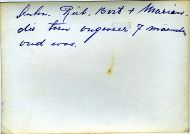 Riet. Bert + Marian
die toen ongeveer 7 maanden
oud was.